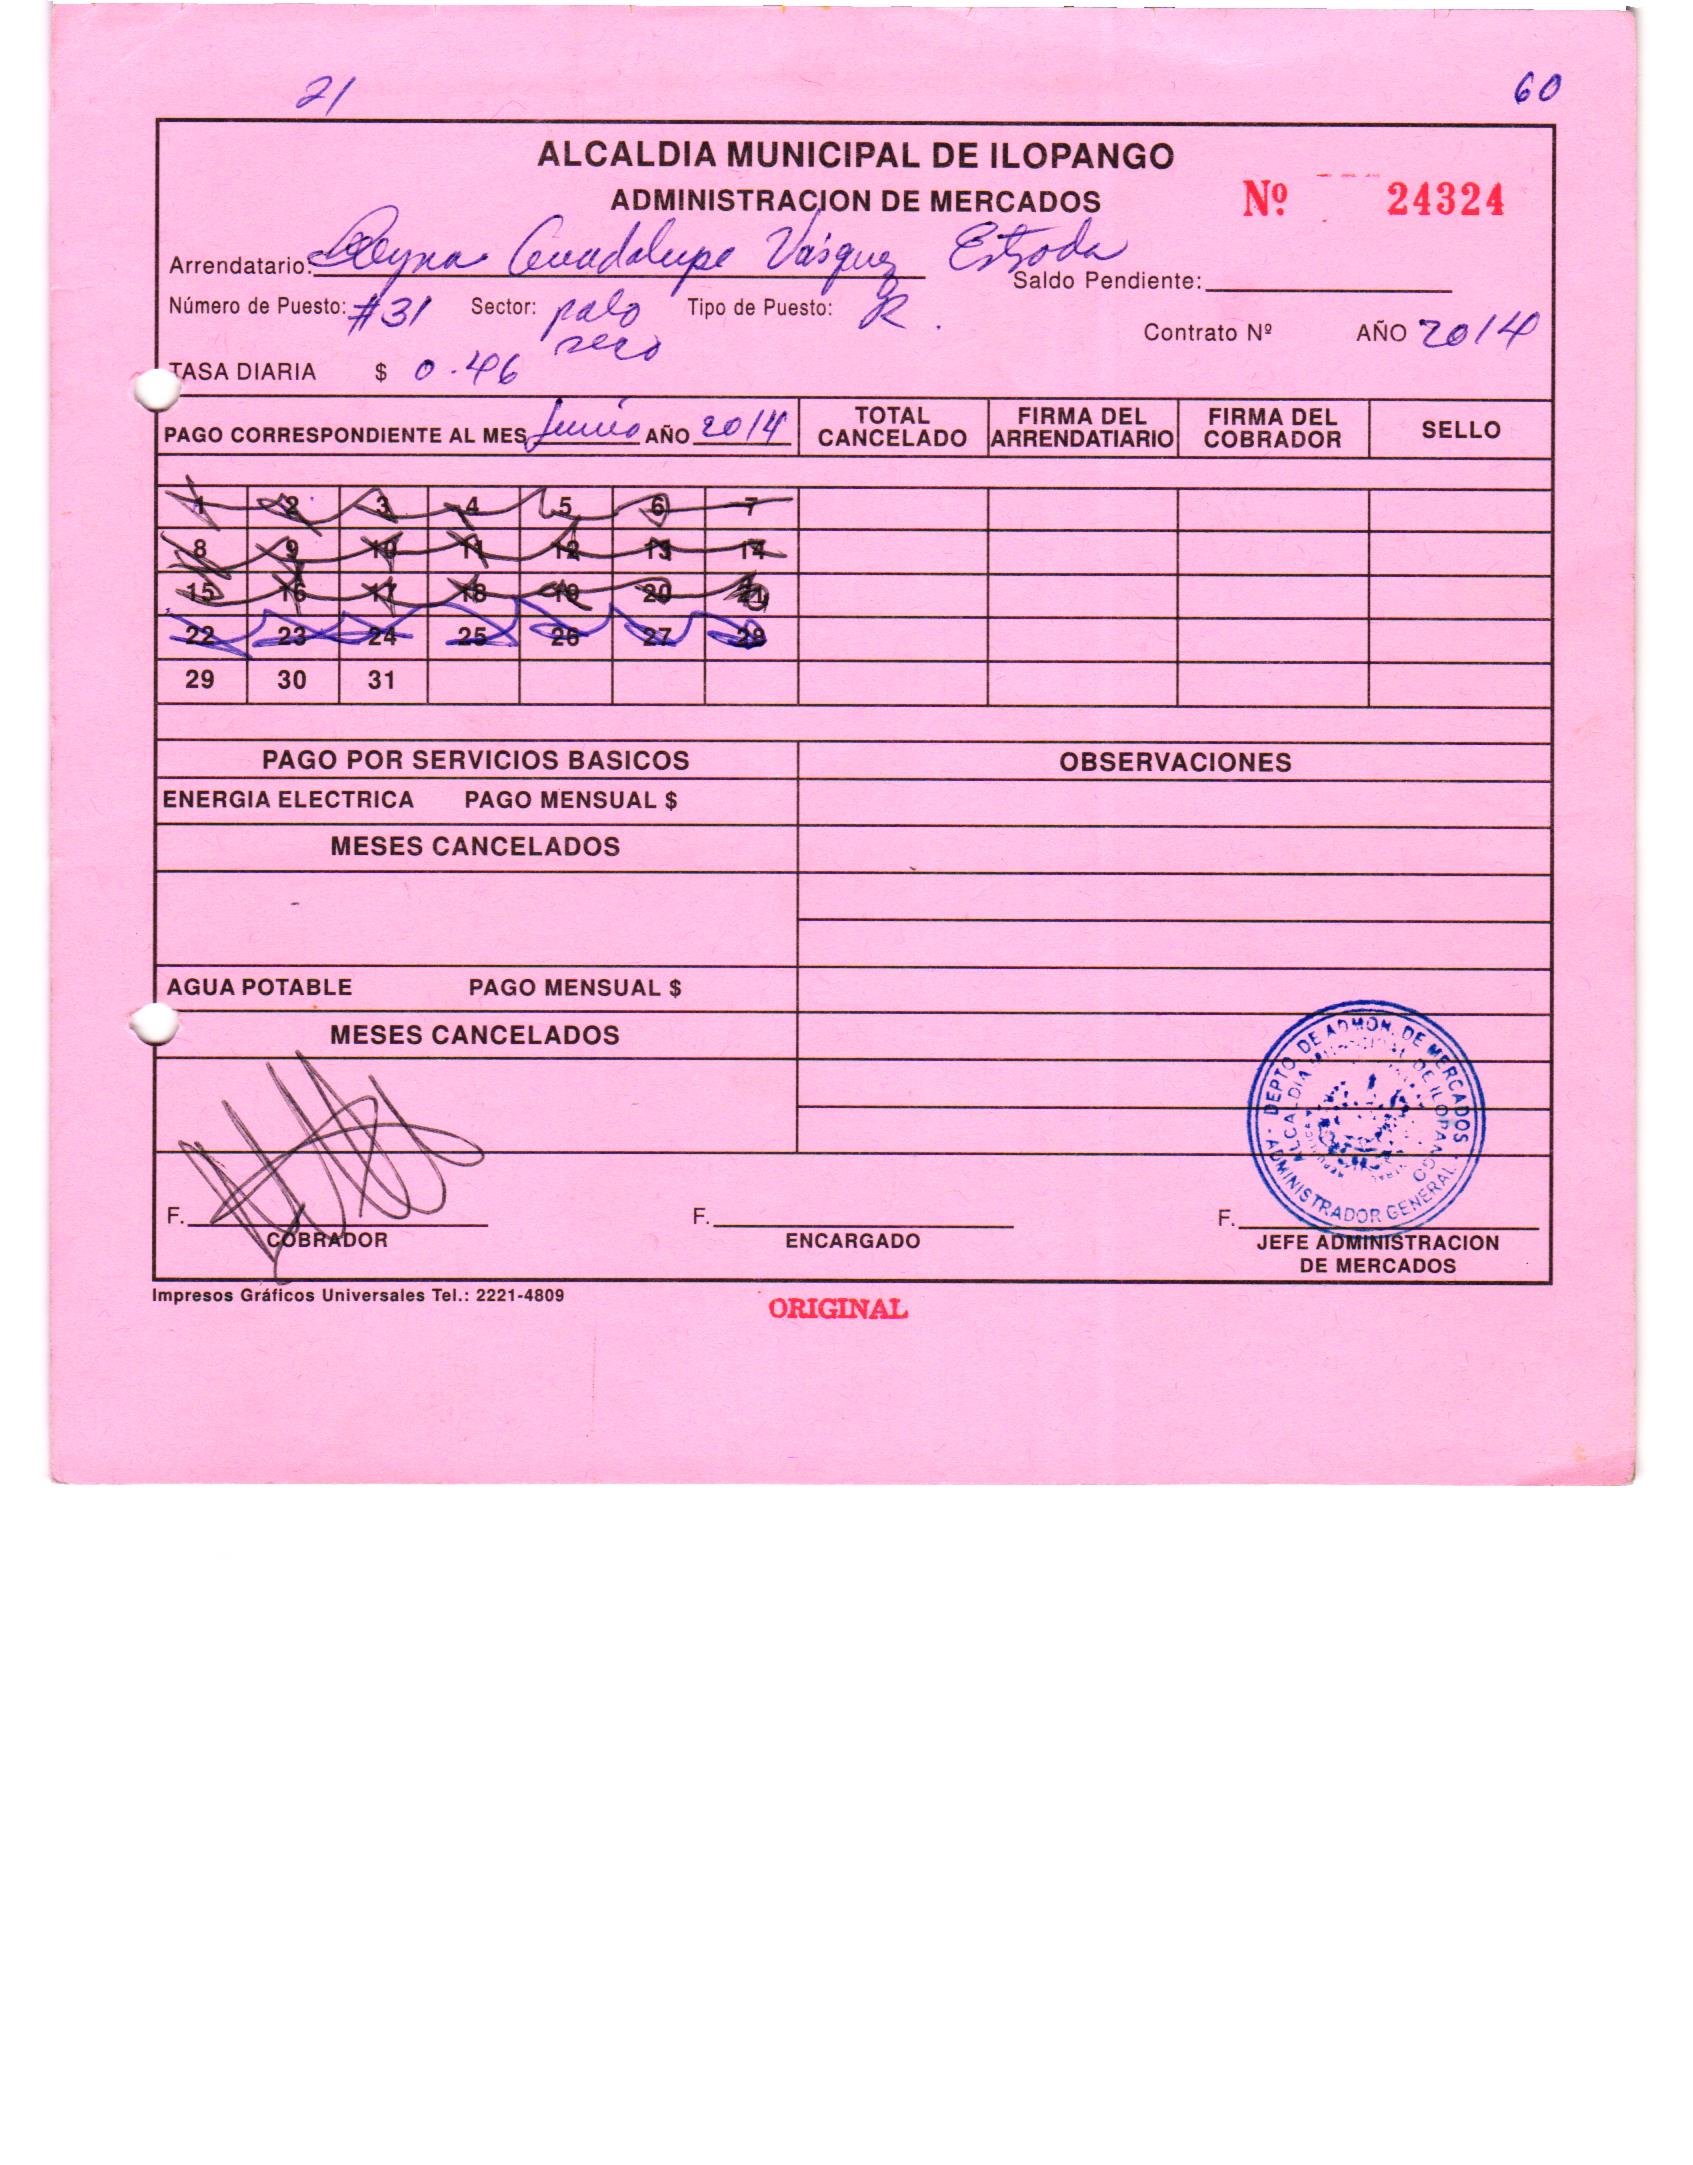 21 60
ALCALDIA MUNICIPAL DE ILOPANGO
ADMINISTRACION DE MERCADOS
Nº 24324
Arrendatario: Reyna Guadalupe Vásquez Estrada
Saldo Pendiente:
Número de Puesto: #31 Sector: palo seco Tipo de Puesto: R.
Contrato Nº AÑO 2014
TASA DIARIA $ 0.46
PAGO CORRESPONDIENTE AL MES Junio AÑO 2014
TOTAL CANCELADO
FIRMA DEL ARRENDATIARIO
FIRMA DEL COBRADOR
SELLO
1 2 3 4 5 6 7
8 9 10 11 12 13 14
15 16 17 18 19 20 21
22 23 24 25 26 27 28
29 30 31
PAGO POR SERVICIOS BASICOS OBSERVACIONES
ENERGIA ELECTRICA PAGO MENSUAL $
MESES CANCELADOS
AGUA POTABLE PAGO MENSUAL $
MESES CANCELADOS
DEPTO DE ADMON. DE MERCADOS
ALCALDIA MUNICIPAL DE ILOPANGO
ADMINISTRADOR GENERAL
F. F. F.
COBRADOR ENCARGADO JEFE ADMINISTRACION
DE MERCADOS
Impresos Gráficos Universales Tel.: 2221-4809
ORIGINAL